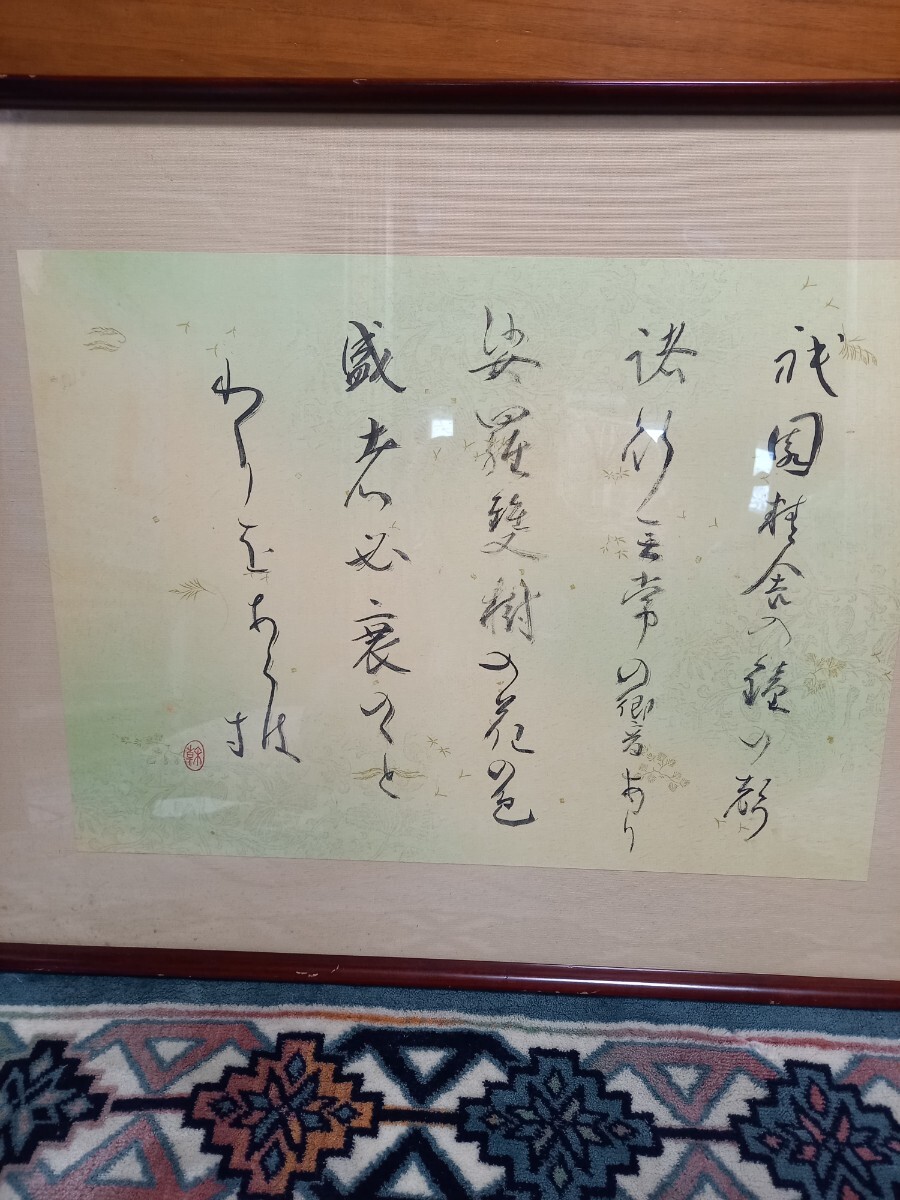 祇園精舎の鐘の声
諸行無常の響あり
娑羅雙樹の花の色
盛者必衰のこと
わりをあらはす